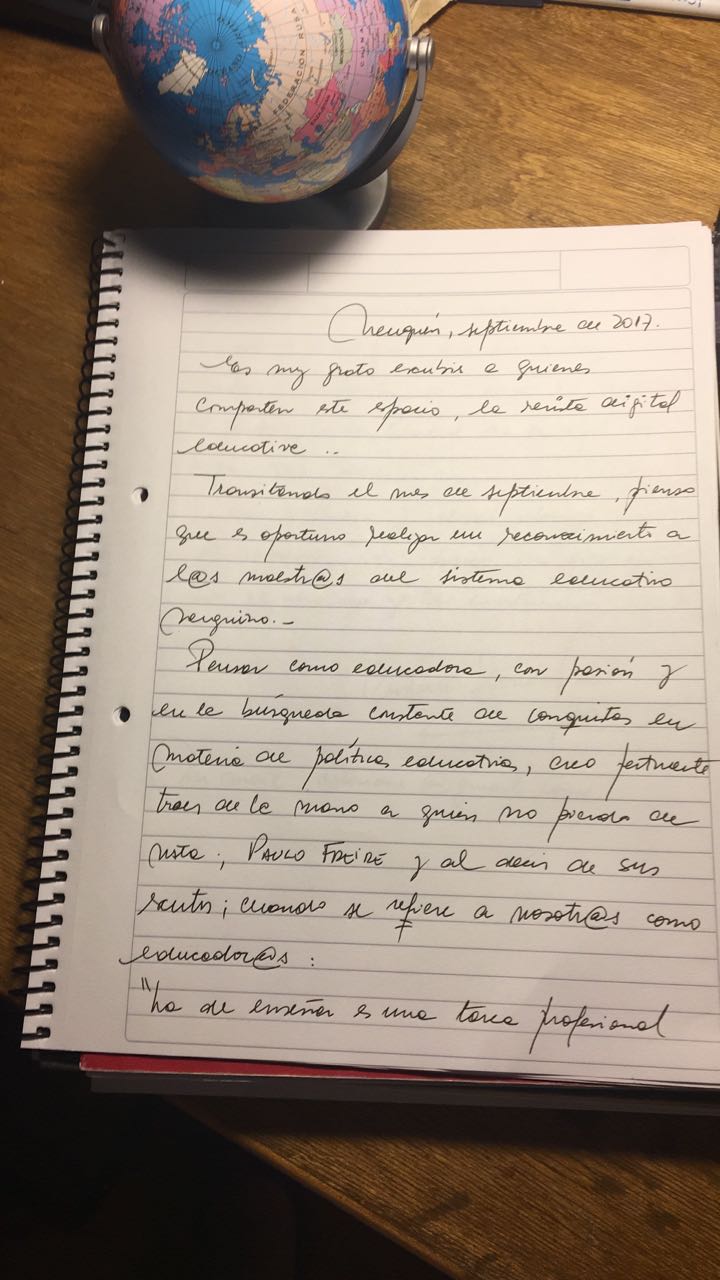 FEDERACION RUSA
CHINA
MONGOLIA
Neuquén, septiembre de 2017.
Es muy grato escribir a quienes
comparten este espacio, la revista digital
educativa ..
Transitando el mes de septiembre, pienso
que es oportuno realizar un reconocimiento a
l@s maestr@s del sistema educativo
neuquino.-
Pensar como educadora, con pasión y
en la búsqueda constante de conquistas en
materia de política educativa, creo
traer de la mano a quien no pierdo de
vista; PAULO FREIRE y al decir de sus
escritos; cuando se refiere a nosotr@s como
educador@s :
"La de enseñar es una tarea profesional